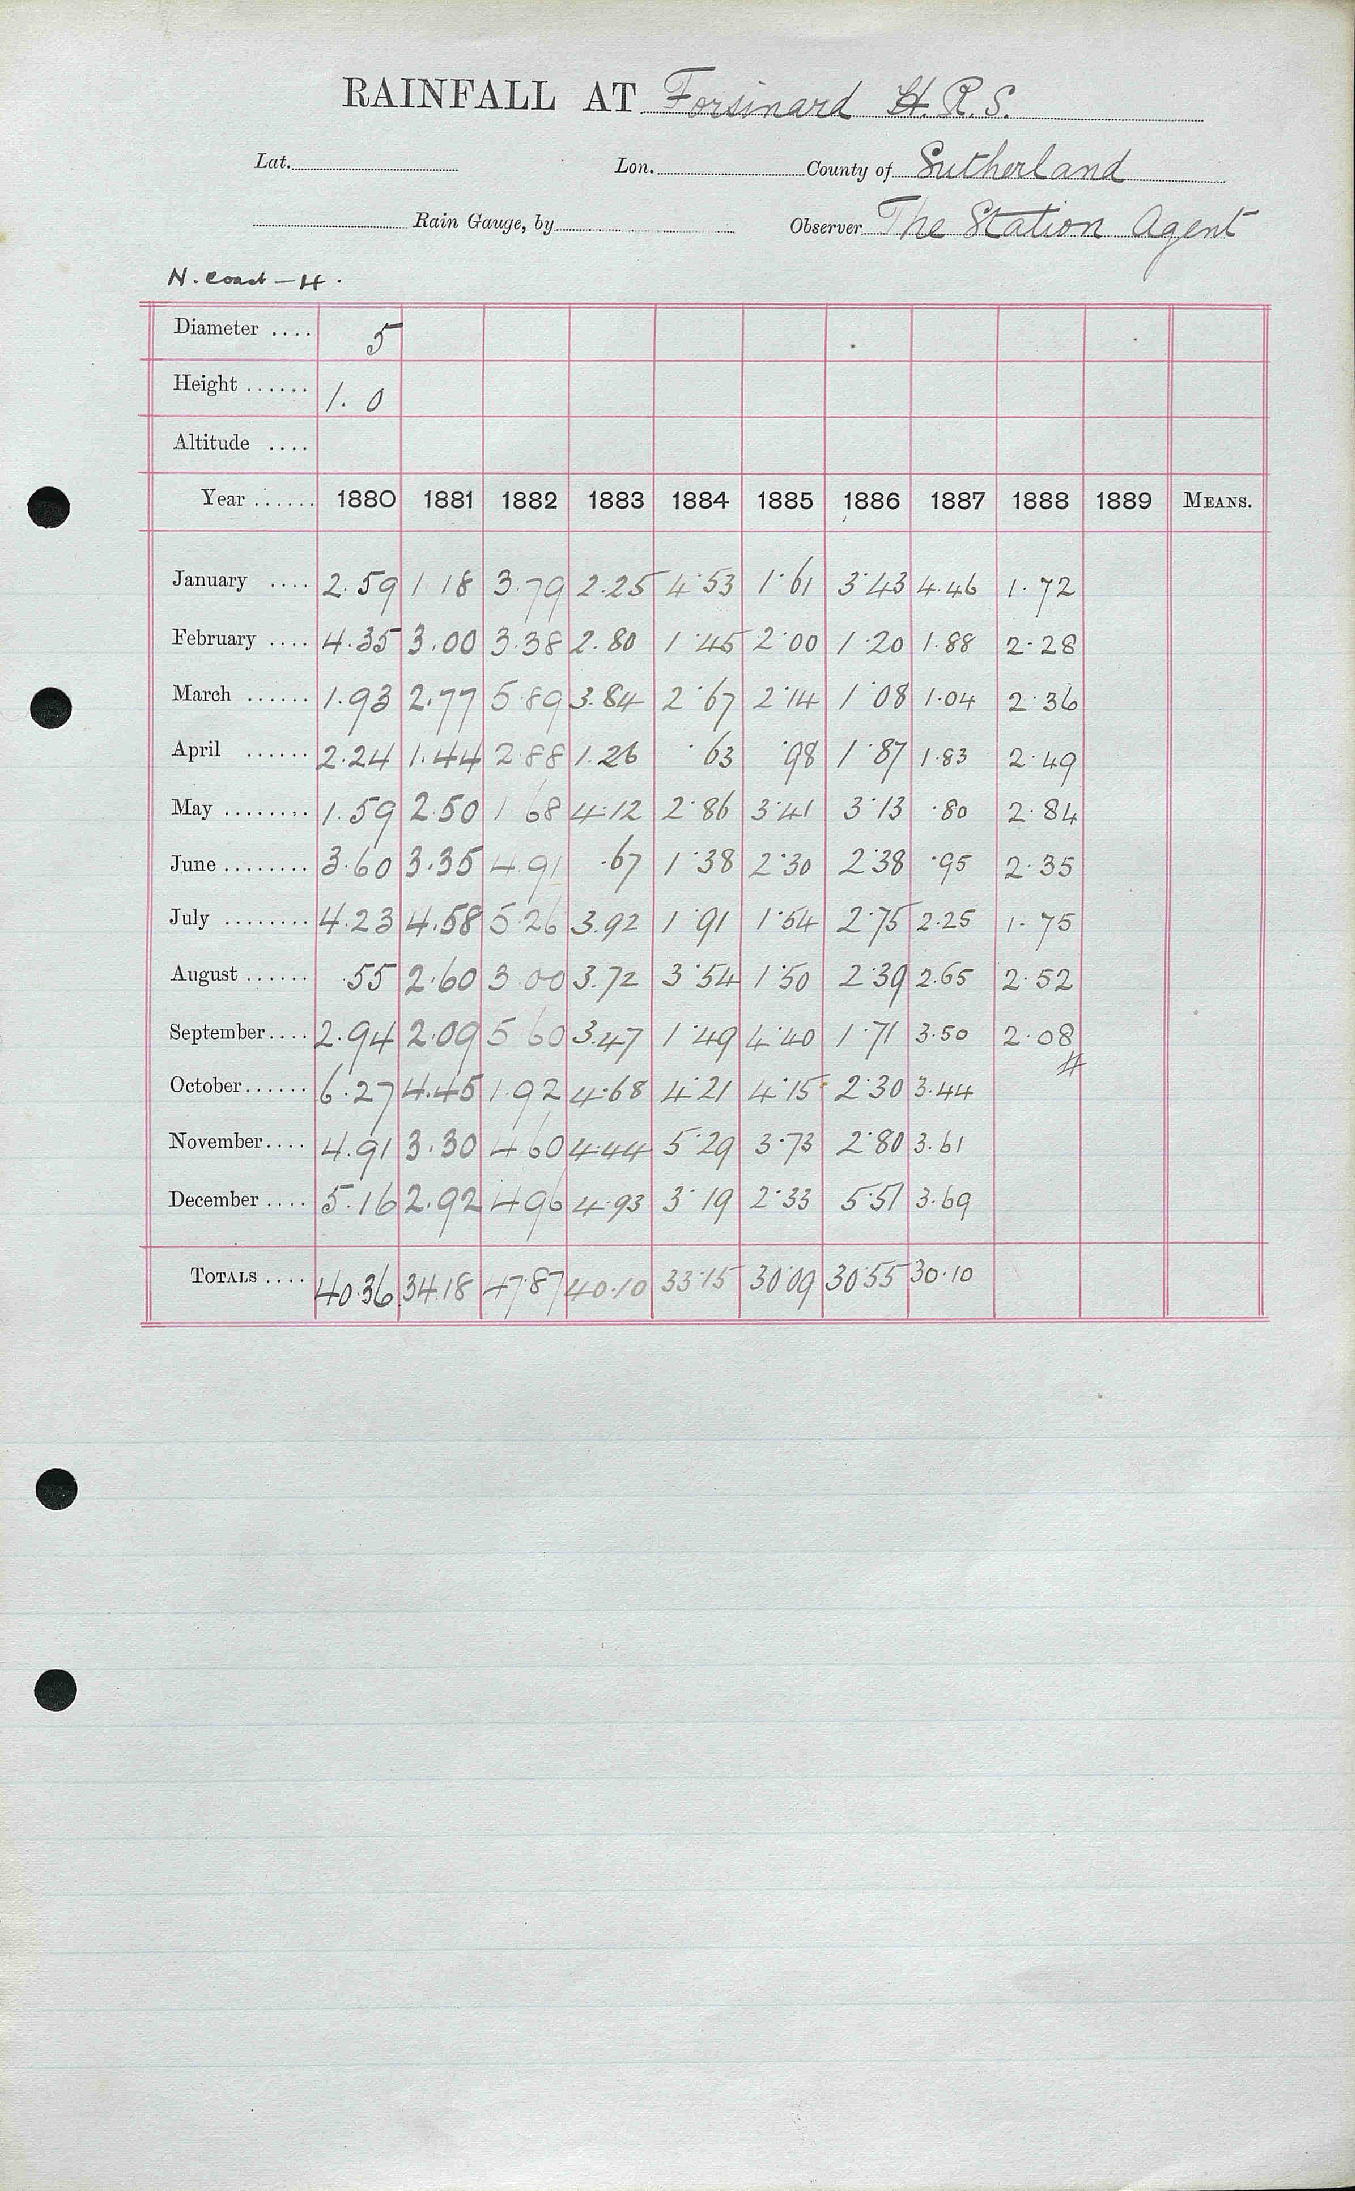 RAINFALL AT Forsinard H.R.S.
Lat. Lon. County of Sutherland
Rain Gauge, by Observer The Station Agent
N. Coast - H.
Diameter .... 5
Height ...... 1. 0
Altitude ....
Year ...... 1880 1881 1882 1883 1884 1885 1886 1887 1888 1889 MEANS.
January .... 2.59 1.18 3.79 2.25 4.53 1.61 3.43 4.46 1.72
February .... 4.35 3.00 3.38 2.80 1.45 2.00 1.20 1.88 2.28
March ...... 1.93 2.77 5.89 3.84 2.67 2.14 1.08 1.04 2.36
April ...... 2.24 1.44 2.88 1.26 .63 .98 1.87 1.83 2.49
May ........ 1.59 2.50 1.68 4.12 2.86 3.41 3.13 .80 2.84
June ........ 3.60 3.35 4.91 .67 1.38 2.30 2.38 .95 2.35
July ........ 4.23 4.58 5.26 3.92 1.91 1.54 2.75 2.25 1.75
August ...... .55 2.60 3.00 3.72 3.54 1.50 2.39 2.65 2.52
September.... 2.94 2.09 5.60 3.47 1.49 4.40 1.71 3.50 2.08
October...... 6.27 4.45 1.92 4.68 4.21 4.15 2.30 3.44 #
November.... 4.91 3.30 4.60 4.44 5.29 3.73 2.80 3.61
December .... 5.16 2.92 4.96 4.93 3.19 2.33 5.51 3.69
TOTALS .... 40.36 34.18 47.87 40.10 33.15 30.09 30.55 30.10